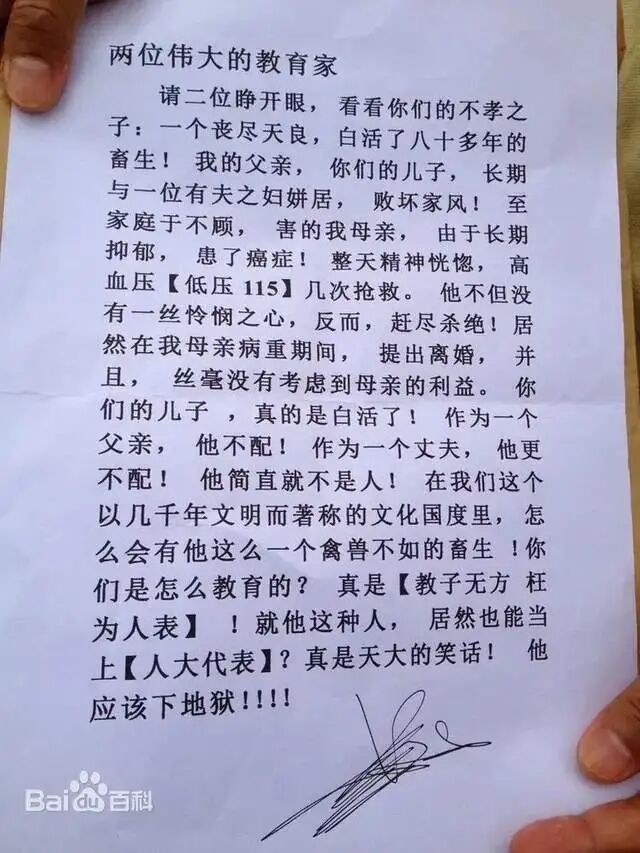 两位伟大的教育家
请二位睁开眼， 看看你们的不孝之
子：一个丧尽天良，白活了八十多年的
畜生！ 我的父亲， 你们的儿子， 长期
与一位有夫之妇姘居， 败坏家风！ 至
家庭于不顾， 害的我母亲， 由于长期
抑郁， 患了癌症！ 整天精神恍惚，高
血压【低压 115】几次抢救。 他不但没
有一丝怜悯之心，反而，赶尽杀绝！居
然在我母亲病重期间， 提出离婚， 并
且， 丝毫没有考虑到母亲的利益。 你
们的儿子 ，真的是白活了！ 作为一个
父亲， 他不配！ 作为一个丈夫， 他更
不配！ 他简直就不是人！ 在我们这个
以几千年文明而著称的文化国度里，怎
么会有他这么一个禽兽不如的畜生 ！你
们是怎么教育的？ 真是【教子无方 枉
为人表】 ！就他这种人， 居然也能当
上【人大代表】？真是天大的笑话！ 他
应该下地狱！！！！
Bai百科